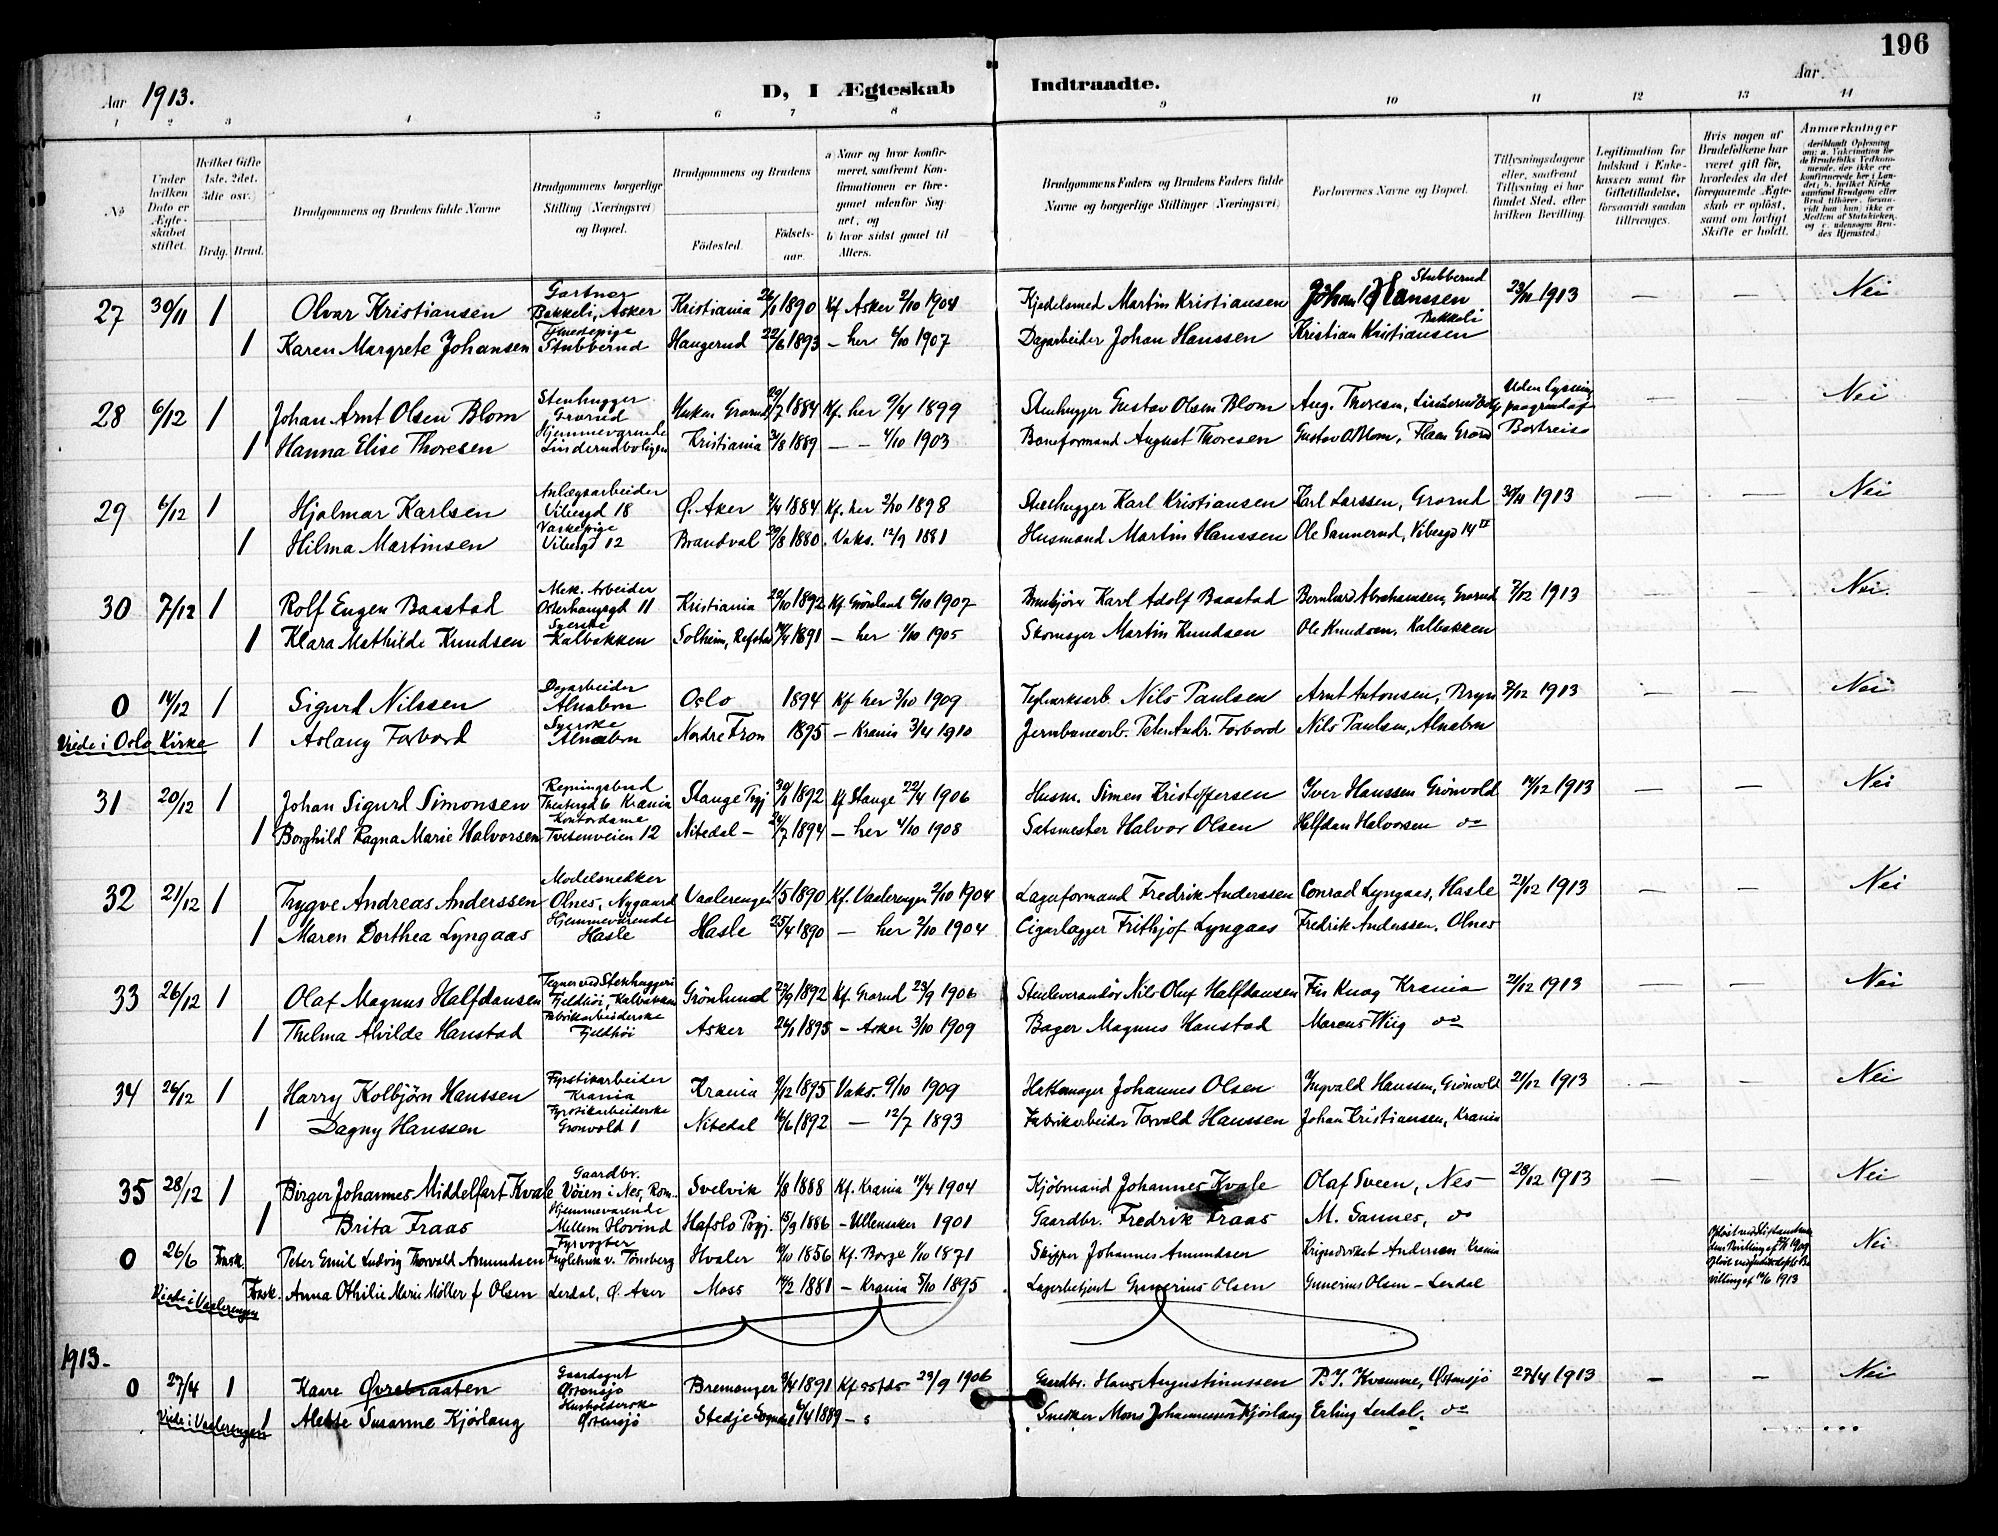 196
Aar 1913.
D, I Ægteskab Indtraadte.
Aar.
1 2 3 4 5 6 7 8 9 10 11 12 13 14
No
Under hvilken Dato er Ægteskabet stiftet.
Hvilket Gifte 1ste, 2det, 3die osv.)
Brdg. Brud.
Brudgommens og Brudens fulde Navne
Brudgommens borgerlige Stilling (Næringsvei) og Bopæl.
Brudgommens og Brudens
Födested. Födsels-aar.
a) Naar og hvor konfirmeret, saafremt Konfirmationen er foregaaet udenfor Sognet, og
b) hvor sidst gaaet til Alters.
Brudgommens Faders og Brudens Faders fulde Navne og borgerlige Stillinger (Næringsvei)
Forlovernes Navne og Bopæl.
Tillysningsdagene eller, saafremt Tillysning ei har fundet Sted, efter hvilken Bevilling.
Legitimation for Indskud i Enkekassen samt for Giftetilladelse, forsaavidt saadan tiltrænges.
Hvis nogen af Brudefolkene har været gift för, hvorledes da det foregaaende Ægteskab er oplöst, samt om lovligt Skifte er holdt.
Anmærkninger
27 30/11 1 Olvar Kristiansen Gartner Bakkeli, Asker Kristiania 1890 Kf Asker 2/10 1904 Kjedelsmed Martin Kristiansen Johan Hanssen Stubberud 23/11 1913 — — Nei
1 Karen Margrete Johansen Tjenestepige Stubberud Haugerud 22/6 1893 — her 6/10 1907 Dagarbeider Johan Hanssen Kristian Kristiansen Bakkeli
28 6/12 1 Johan Arnt Olsen Blom Stenhugger Grorud Grorud 29/7 1884 Kf. her 9/4 1899 Stenhugger Gustav Olsen Blom Aug. Thoresen, Uden lysning paagrund af Bortreise — — Nei
1 Hanna Elise Thoresen Hjemmeværende Linderudboligen Kristiania 31/8 1889 — — 4/10 1903 Baneformand August Thoresen Gustav O Blom, Flaen Grorud
29 6/12 1 Hjalmar Karlsen Anlægsarbeider Vibesgd 18 Ø. Aker 1884 Kf. her 2/10 1898 Stenhugger Karl Kristiansen Karl Larssen, Grorud 30/11 1913 — — Nei
1 Hilma Martinsen Vaskepige Vibesgd 12 Brandval 1880 Vaks. 12/9 1881 Husmand Martin Hanssen Ole Sannerud, Vibesgd 14 IV
30 7/12 1 Rolf Eugen Baastad Mek. Arbeider Osterhausgd 11 Kristiania 22/10 1892 Kf. Grønland 6/10 1907 Karl Adolf Baastad Bernhard Abrahamsen, Grorud 7/12 1913 — — Nei.
1 Klara Mathilde Knudsen Syerske Kalbakken Solheim, Refstad 1891 — her 1/10 1905 Skomager Martin Knudsen Ole Knudsen, Kalbakken
0 14/12 1 Sigurd Nilssen Dagarbeider Alnabru Oslo 1894 Kf her 3/10 1909 Teglverksarb. Nils Paulsen Arnt Antonsen, Bryn 7/12 1913 — — Nei
Viede i Oslo Kirke 1 Aslaug Forbord Syerske Alnabru Nordre Fron 1895 — Krania 3/4 1910 Jernbanearb. Peter Andr. Forbord Nils Paulsen, Alnabru
31 20/12 1 Johan Sigurd Simonsen Regningsbud Theatergd 6 Krania Stange Prgj 30/1 1892 Kf Stange 22/4 1906 Husm. Simen Kristoffersen Iver Hanssen Grönvold 14/12 1913 — — Nei
1 Borghild Ragna Marie Halvorsen Kontordame Tvetenveien 12 Nitedal — 24/7 1894 — her 4/10 1908 Satsmester Halvor Olsen Halfdan Halvorsen do
32 21/12 1 Trygve Andreas Anderssen Modelsnedker Olnes, Nygaard Vaalerengen 1/5 1890 Kf. Vaalerengen 2/10 1904 Lagerformand Fredrik Anderssen Conrad Lyngaas, Hasle 21/12 1913 — — Nei
1 Maren Dorthea Lyngaas Hjemmeværende Hasle Hasle 25/4 1890 — her 2/10 1904 Cigarlægger Frithjof Lyngaas Fredrik Anderssen, Olnes
33 26/12 1 Olaf Magnus Halfdansen Tegner ved Stenhuggeri Fjeldhöi, Kalbakken Grönlund 27/9 1892 Kf. Grorud 23/9 1906 Stenleverandör Nils Oluf Halfdansen Fin Knag Krania 21/12 1913 — — Nei
1 Thelma Alvilde Hanstad Fabrikarbeiderske Fjeldhöi Asker 24/1 1895 — Asker 3/10 1909 Bager Magnus Hanstad Marcus Wiig do
34 26/12 1 Harry Kolbjörn Hanssen Fyrstikarbeider Krania Krania 9/12 1895 Vaks. 9/10 1909 Hattemager Johannes Olsen Ingvald Hanssen, Grönvold 21/12 1913 — — Nei
1 Dagny Hanssen Fyrstikarbeiderske Grönvold 1 Nitedal 1892 — 12/7 1893 Fabrikarbeider Torvald Hanssen Johan Kristiansen, Krania
35 28/12 1 Birger Johannes Middelfart Kvale Gaardbr. Vöien i Nes, Rom. Svelvik 1/8 1888 Kf. Krania 14/4 1904 Kjöbmand Johannes Kvale Olaf Sveen, Nes — 28/12 1913 — — Nei
1 Brita Fraas Hjemmeværende Mellem Hovind Hafslo Prgj. 15/9 1886 — Ullensaker 1901 Gaardbr. Fredrik Fraas M. Sannes, do
0 26/6 Frask. Peter Emil Ludvig Thorvald Amundsen Fyrvogter Fuglehuk v. Tönsberg Hvaler 1856 Kf. Borge 1/10 1871 Skipper Johannes Amundsen Andersen Krania Nei
Viede i Vaalerengen Frask. Anna Othilie Marie Möller f Olsen Lerdal, Ø. Aker Moss 1881 — Krania 5/10 1895 Lagerbetjent Gunerius Olsen Gunerius Olsen — Lerdal
1913.
0 27/4 1 Kaare Øvrebraaten Gaardsgut Østensjø Bremanger 1891 Kf 23/9 1906 Gaardbr. Hans Augustinussen P. I. Kvamme, Østensjö 27/4 1913 — — Nei
Viede i Vaalerengen 1 Alette Susanne Kjörlaug Husholderske Østensjø Stedje Sogndal 1889 — Snedker Mons Johannessen Kjörlaug Erling Lerdal. do